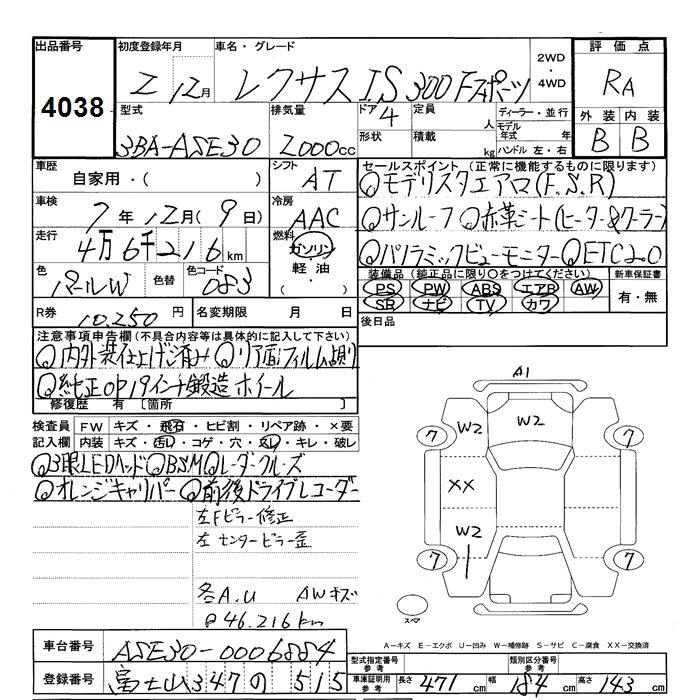 出品番号 初度登録年月 車名・グレード 2WD・4WD 評価点
4038 2 12月 レクサス IS 300 Fスポーツ RA
型式 排気量 ドア 4 定員 人 ディーラー・並行 外装 内装
3BA-ASE30 2000cc 形状 積載 kg モデル年式 年 ハンドル 左・右 B B
車歴 自家用・( ) シフト AT セールスポイント (正常に機能するものに限ります)
◎モデリスタエアロ(F.S.R)
車検 7年12月(9日) 冷房 AAC ◎サンルーフ◎赤革シート(ヒーター&クーラー)
走行 4万6千216km 燃料 ガソリン 軽油・ ◎パノラミックビューモニター◎ETC2.0
色 パールW 色替 色コード 083 装備品 (純正品に限り○をつけてください) 新車保証書
PS PW ABS エアB AW 有・無
SR ナビ TV カワ
R券 10.250円 名変期限 月 日 後日品
注意事項申告欄 (不具合内容等は具体的に記入して下さい)
◎内外装仕上げ済み◎リア面フィルム貼り
◎純正OP19インチ鍛造ホイール
修復歴 有 [箇所 ]
検査員記入欄 FW キズ・飛石・ヒビ割・リペア跡・×要
内装 キズ・汚レ・コゲ・穴・スレ・キレ・破レ
◎3眼LEDヘッド◎BSM◎レーダークルーズ
◎オレンジキャリパー◎前後ドライブレコーダー
左Fピラー修正
左センターピラー歪
各A.U AWキズ
@46.216km
A1
W2 W2
7 7
XX
W2
7 7
スペア
A-キズ E-エクボ U-凹み W-補修跡 S-サビ C-腐食 XX-交換済
車台番号 ASE30-0006884
型式指定番号 参考 類別区分番号 参考
登録番号 富士山347の 515
車庫証明用 参考 長さ 471cm 幅 184cm 高さ 143cm